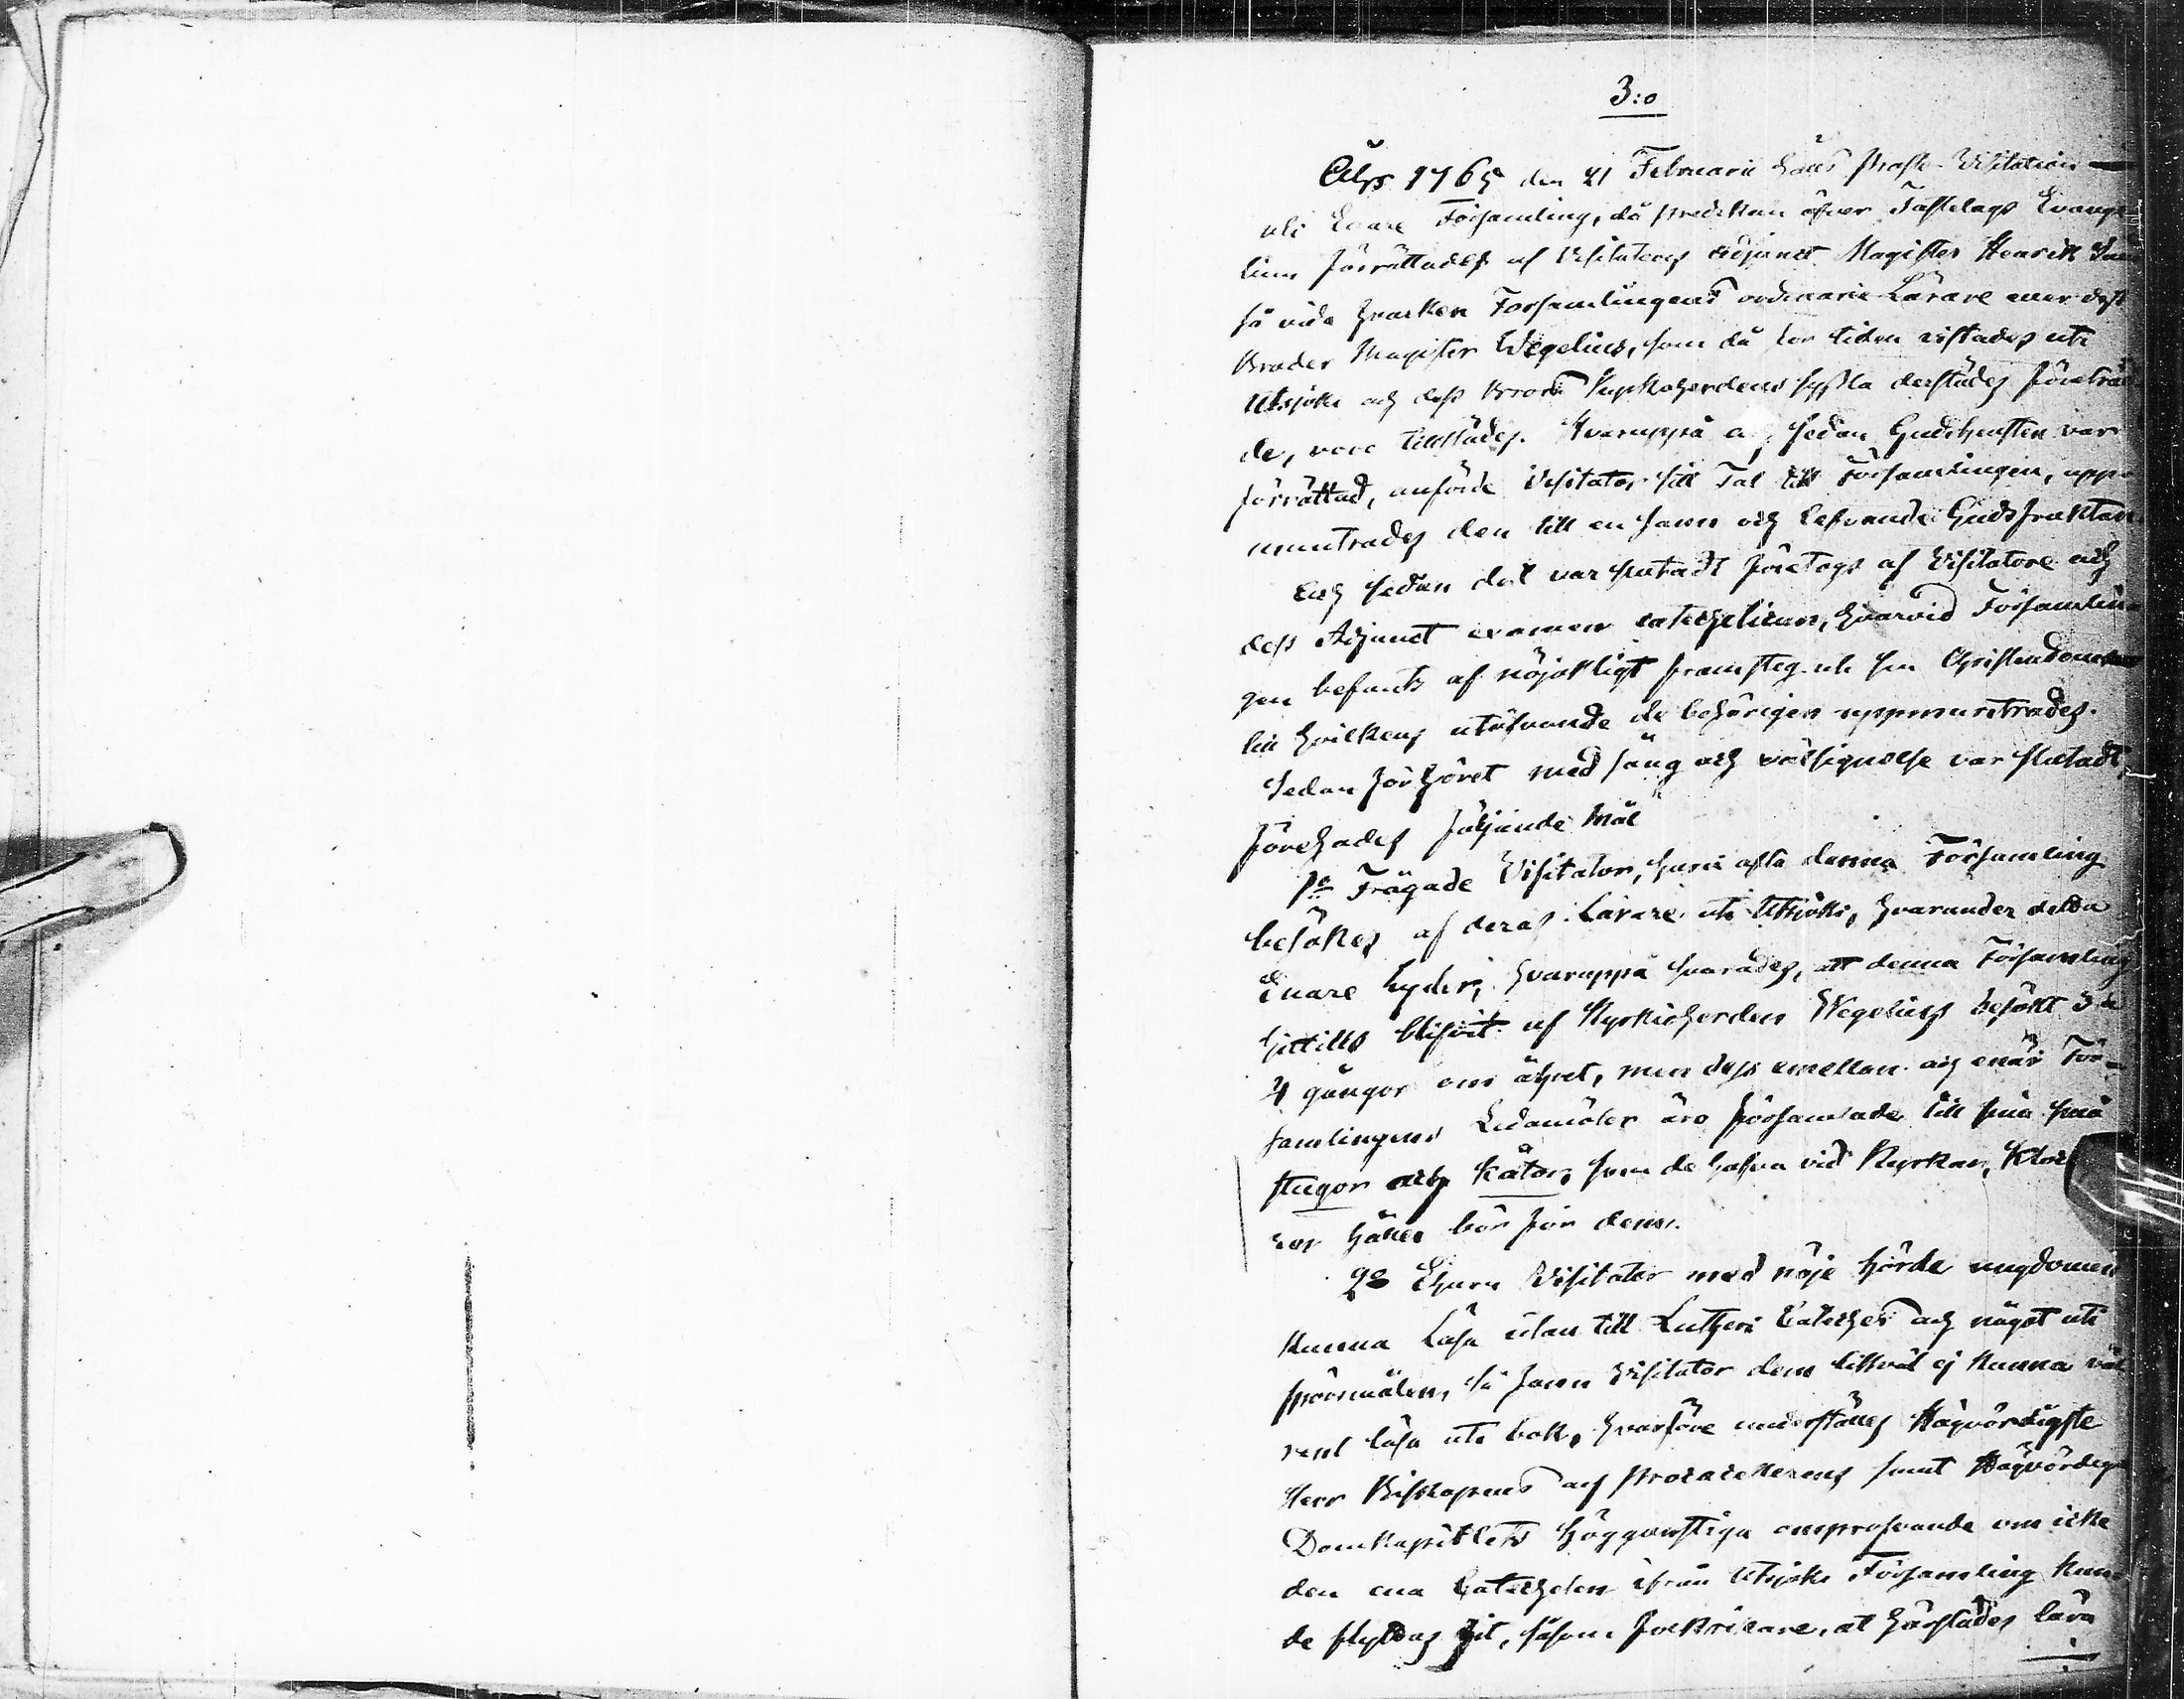 3:o
Åhr 1765 den 21 Februarii hölts Prosta-Visitation
uti Enare Församling, då predikan öfver Fastlags Evange
lium förrättades af Visitators Adjunct Magister Henrik
så vida hvarken Församlingens ordinarie Lärare eller dess
Broder Magister Wegelius, som då för tiden vistades uti
Utsjoki och dess Broders Kyrkoherdens syssla derstädes förestod
de, voro tillstädes. Hvaruppå och sedan Gudstjensten var
förrättad, anförde Visitator sitt Tal till Församlingen, upp-
muntrades den till en sann och lefvande Gudsfruktan.
Och sedan det var slutadt företogs af Visitatore och
dess Adjunct examen catecheticum, hvarvid Församlin-
gen befants af nöjaktigt framsteg uti sin Christendom
till hvilkens utöfvande de behörigen uppmuntrades.
Sedan förhöret med sång och välsignelse var slutadt,
förehades följande Mål
1o Frågade Visitator, huru ofta denna Församling
besökes af deras Lärare uti Utsjoki, hvarunder detta
Enare lyder; hvaruppå svarades, att denna Församling
hittills blifvit af Kyrkioherden Wegelius besökt 3 a
4 gångor om åhret, men dess emellan och enär För-
samlingens Ledamöter äro församlade till sina små
stugor och kåtor, som de hafva vid Kyrkan,
håller bön för dem.
2o Ehuru Visitator med nöje hörde ungdomen
kunna läsa utan till Lutheri Cateches och något uti
spörsmålen, så fann Visitator dem likväl ej kunna väl
rent läsa uti bok, hvarföre understälts Högvördigste
Herr Biskopens och Procancellerens samt Högvördige
Domkapitlets höggunstiga ompröfvande om icke
den ena Catecheten ifrån Utsjoki Församling kun-
de flyttas hit, såsom , at härstädes lära